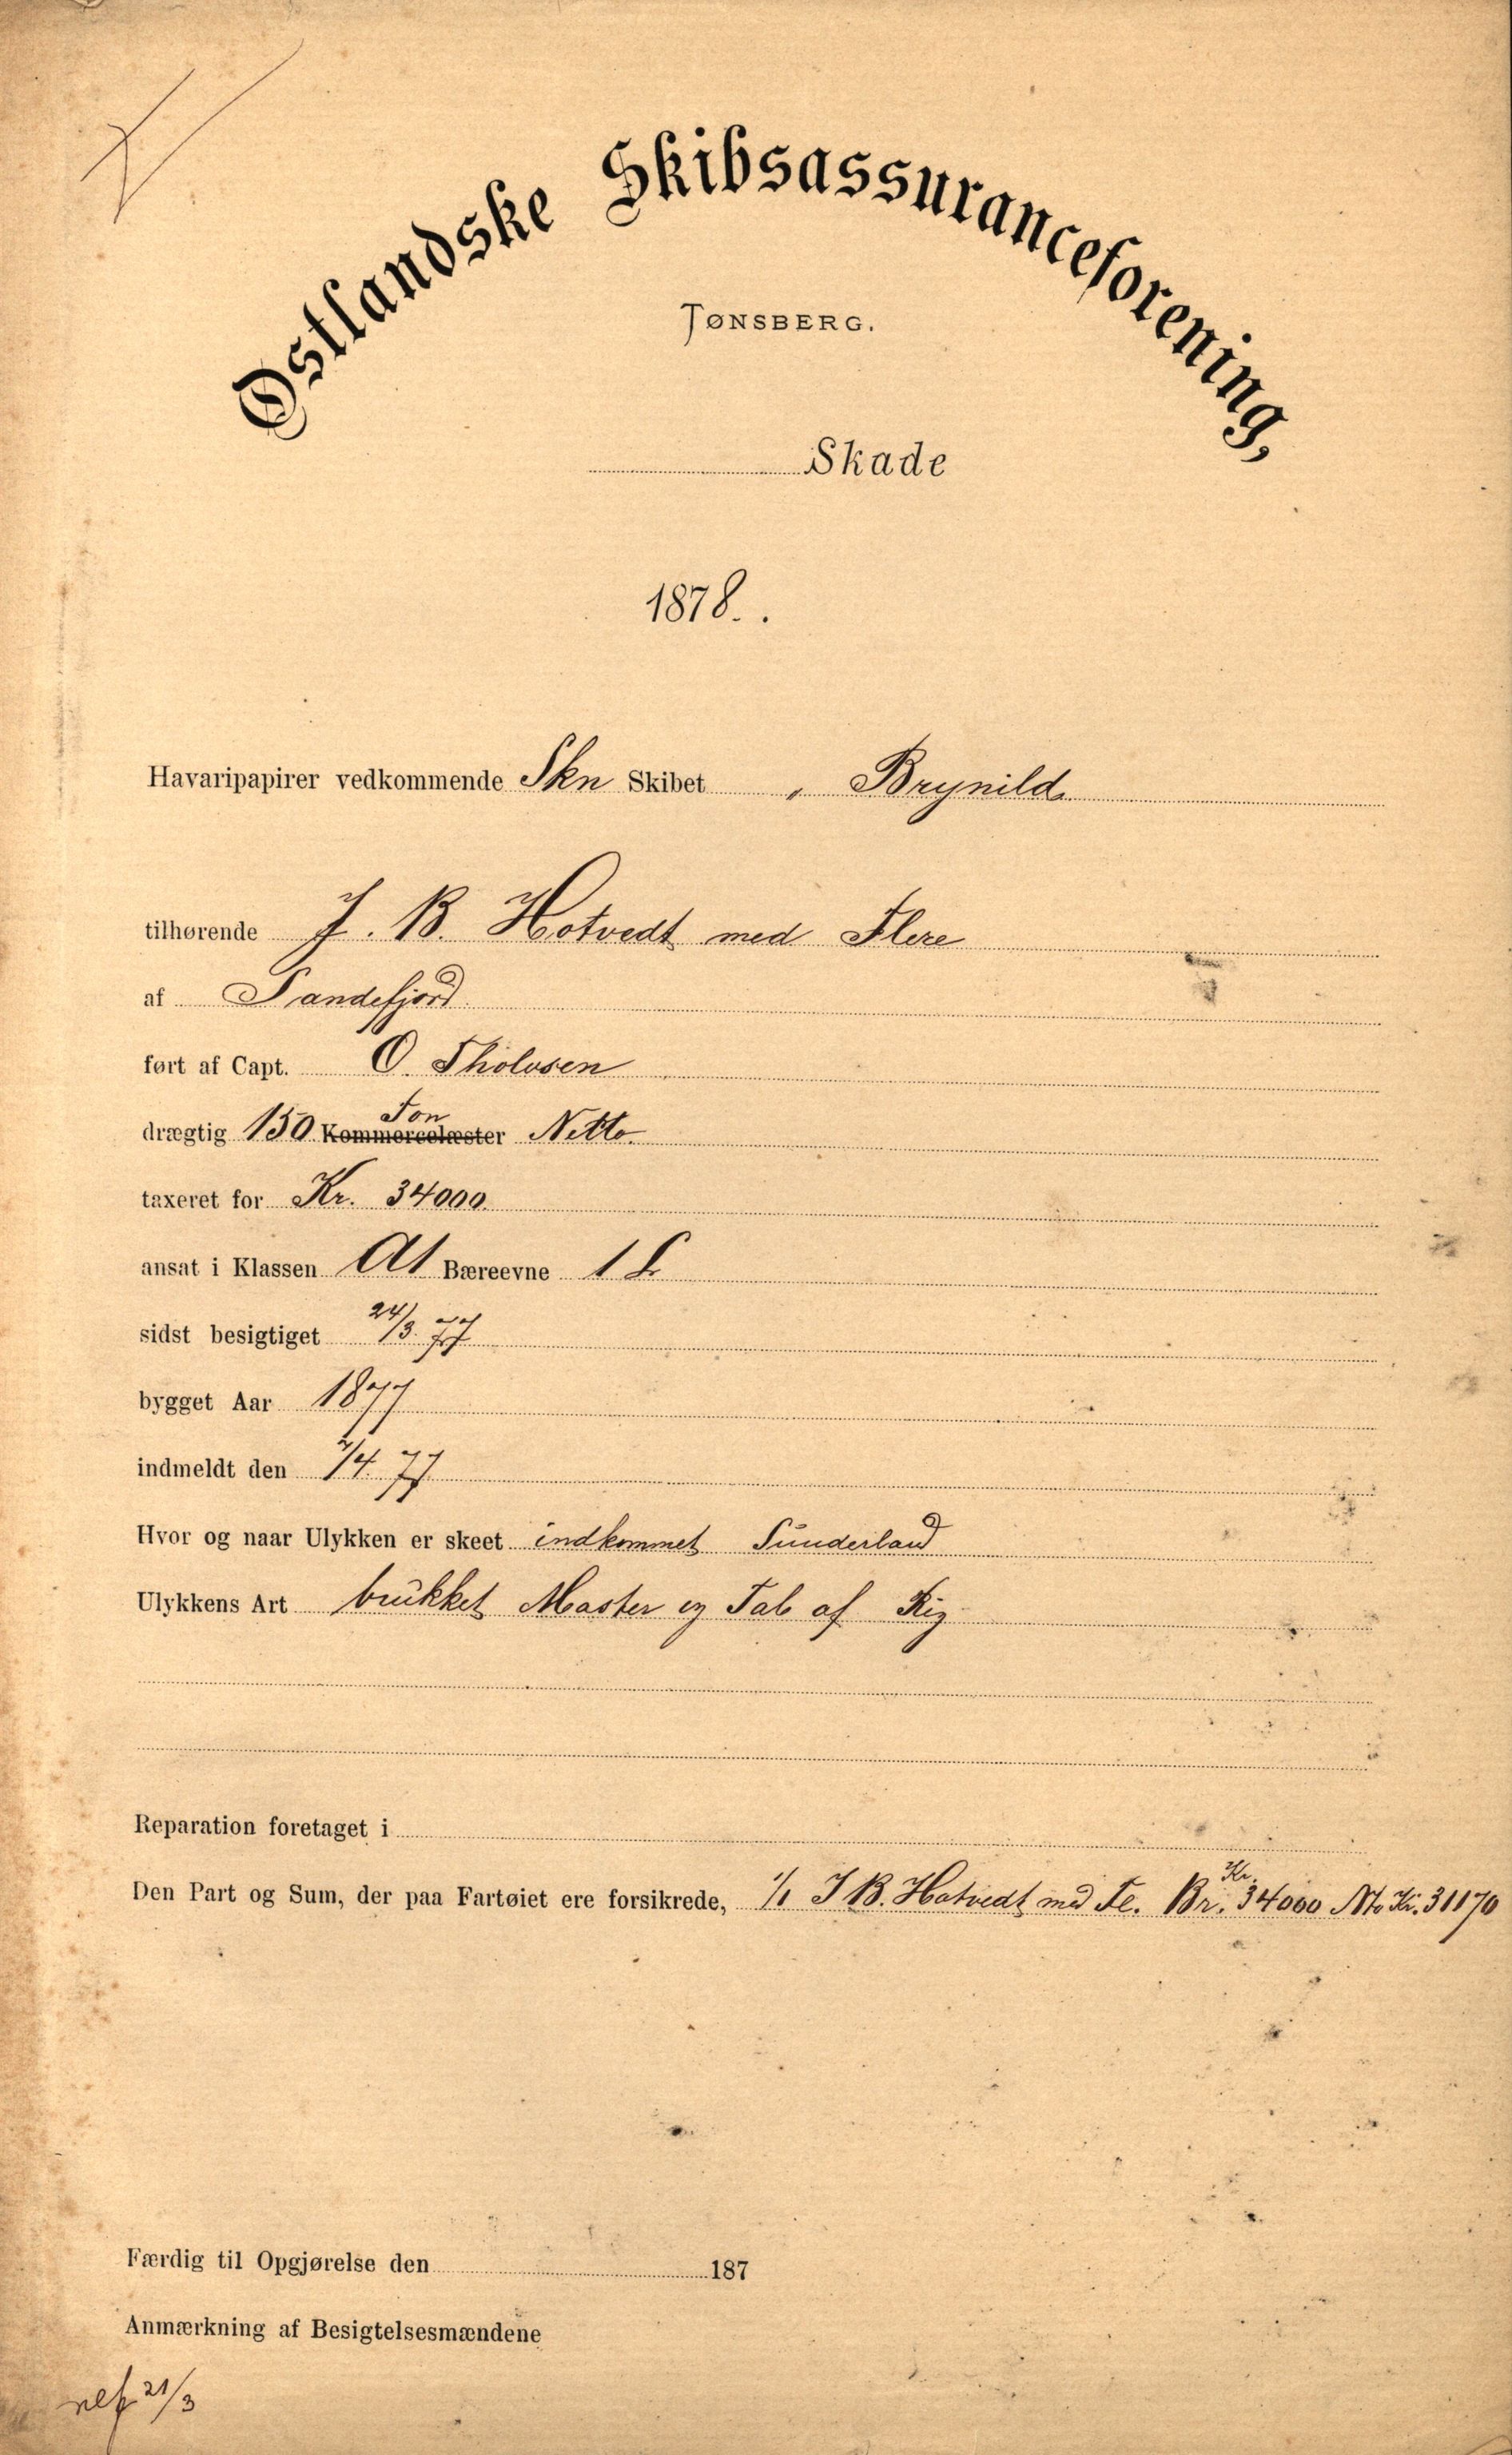 Østlandske Skibsassuranceforening,
TØNSBERG.
Skade
1878.
Havaripapirer vedkommende Skn Skibet „ Brynild
tilhørende J. B. Hotvedt med Flere
af Sandefjord
ført af Capt. O. Tholvsen
Ton
drægtig 150 Kommercelæster Netto.
taxeret for Kr. 34000.
ansat i Klassen A1 Bæreevne 1
sidst besigtiget 24/3 77
bygget Aar 1877
indmeldt den /4 77
Hvor og naar Ulykken er skeet indkommet Sunderland
Ulykkens Art brukket Master og Tab af Rig
Reparation foretaget i
Kr.
Den Part og Sum, der paa Fartøiet ere forsikrede, 1/1 J B. Hotvedt med Fl. Br. 34000 Nto Kr. 31170
Færdig til Opgjørelse den 187
Anmærkning af Besigtelsesmændene
21/3